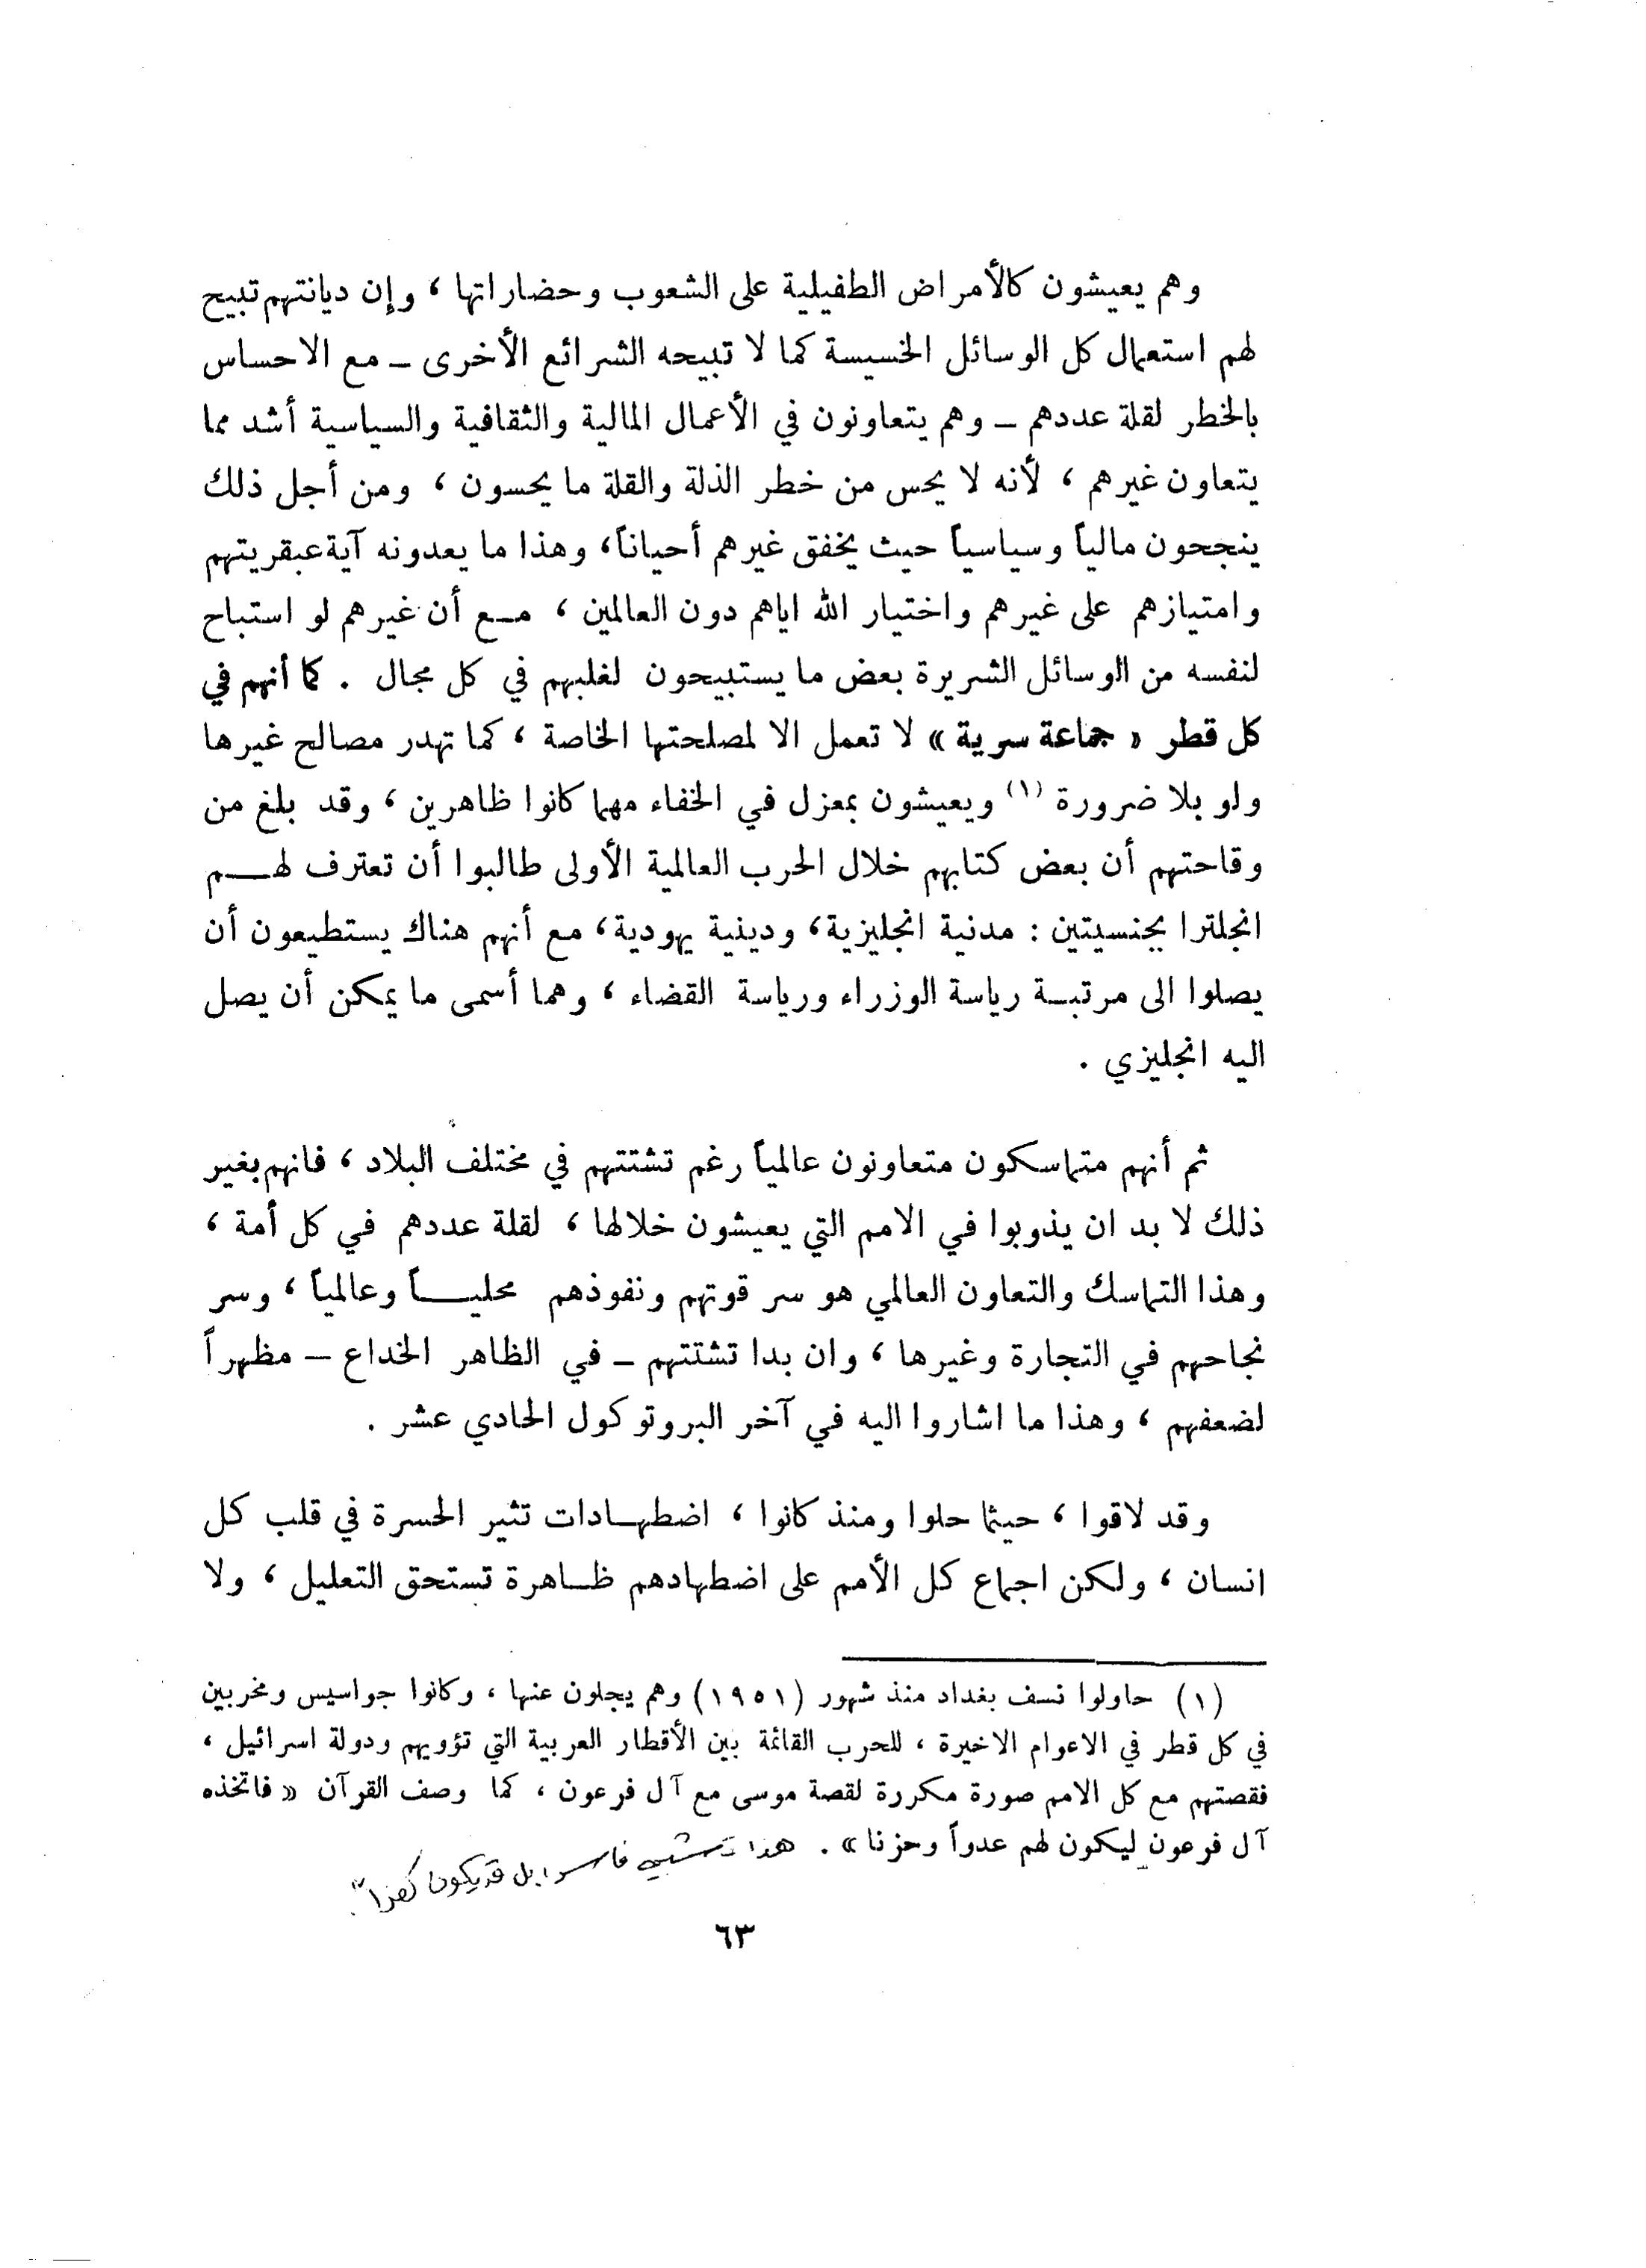 وهم يعيشون كالأمراض الطفيلية على الشعوب وحضاراتها ، وإن ديانتهم تبيح
لهم استعمال كل الوسائل الخسيسة كما لا تبيحه الشرائع الأخرى – مع الاحساس
بالخطر لقلة عددهم – وهم يتعاونون في الأعمال المالية والثقافية والسياسية أشد مما
يتعاون غيرهم ، لأنه لا يحس من خطر الذلة والقلة ما يحسون ، ومن أجل ذلك
ينجحون مالياً وسياسياً حيث يخفق غيرهم أحياناً، وهذا ما يعدونه آية عبقريتهم
وامتيازهم على غيرهم واختيار الله اياهم دون العالمين ، مع أن غيرهم لو استباح
لنفسه من الوسائل الشريرة بعض ما يستبيحون لغلبهم في كل مجال . كما أنهم في
كل قطر « جماعة سرية » لا تعمل الا لمصلحتها الخاصة ، كما تهدر مصالح غيرها
ولو بلا ضرورة (١) ويعيشون بمعزل في الخفاء مهما كانوا ظاهرين ، وقد بلغ من
وقاحتهم أن بعض كتابهم خلال الحرب العالمية الأولى طالبوا أن تعترف لهم
انجلترا بجنسيتين : مدنية انجليزية، ودينية يهودية، مع أنهم هناك يستطيعون أن
يصلوا الى مرتبة رياسة الوزراء ورياسة القضاء ، وهما أسمى ما يمكن أن يصل
اليه انجليزي .
ثم أنهم متماسكون متعاونون عالمياً رغم تشتتهم في مختلف البلاد ، فانهم بغير
ذلك لا بد ان يذوبوا في الامم التي يعيشون خلالها ، لقلة عددهم في كل أمة ،
وهذا التماسك والتعاون العالمي هو سر قوتهم ونفوذهم محلياً وعالمياً ، وسر
نجاحهم في التجارة وغيرها ، وان بدا تشتتهم – في الظاهر الخداع – مظهراً
لضعفهم ، وهذا ما اشاروا اليه في آخر البروتوكول الحادي عشر .
وقد لاقوا ، حيثما حلوا ومنذ كانوا ، اضطهادات تثير الحسرة في قلب كل
انسان ، ولكن اجماع كل الأمم على اضطهادهم ظاهرة تستحق التعليل ، ولا
(١) حاولوا نسف بغداد منذ شهور (١٩٥١) وهم يجلون عنها ، وكانوا جواسيس ومخربين
في كل قطر في الاعوام الاخيرة ، للحرب القائمة بين الأقطار العربية التي تؤويهم ودولة اسرائيل ،
فقصتهم مع كل الامم صورة مكررة لقصة موسى مع آل فرعون ، كما وصف القرآن « فاتخذه
آل فرعون ليكون لهم عدواً وحزنا » . هذا تشبيه فاسد بل قد يكون كفراً.
٦٣